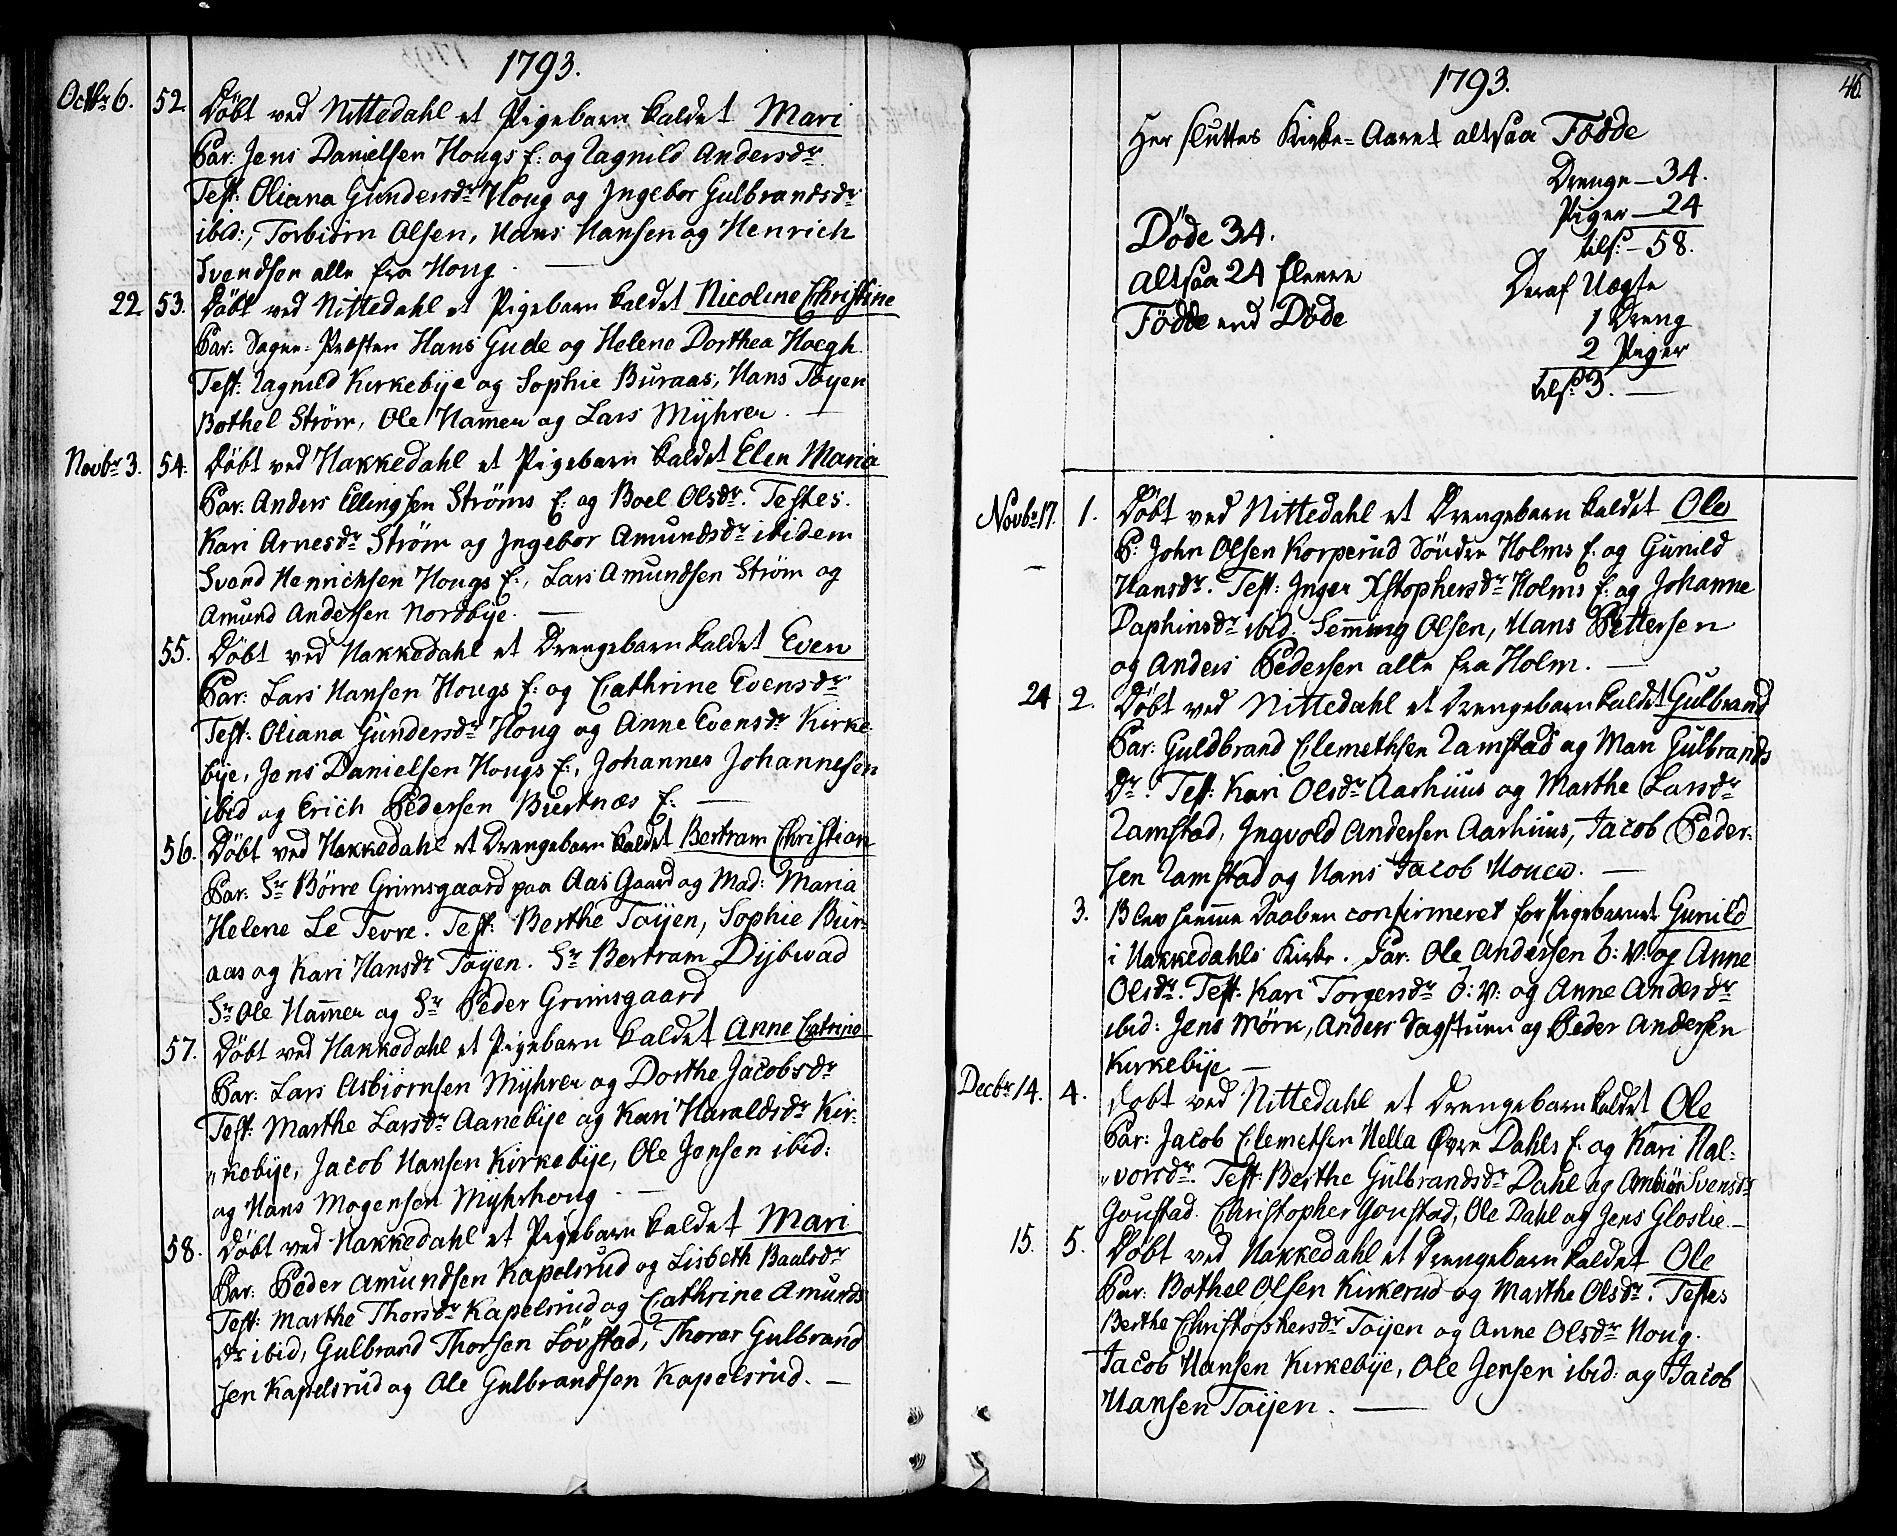 1793.
Octbr 6. 52. Döbt ved Nittedahl et Pigebarn kaldet Mari
Par: Jens Danielsen Hougs E: og Ragnild Andersdr
Test: Oliana Gundersdr Houg og Ingebor Gulbrandsdr
ibid:, Torbiörn Olsen, Hans Hansen og Henrich
Svendsen alle fra Houg. —
22 53. Döbt ved Nittedahl et Pigebarn kaldet Nicoline Christine
Par: Sogne-Præsten Hans Gude og Helene Dorthea Hoegh.
Test: Ragnild Kirkebÿe og Sophie Buraas, Hans Toÿen
Bothel Ström, Ole Ham̄er og Lars Mÿhrer. —
Novbr 3. 54. Döbt ved Hakkedahl et Pigebarn kaldet Elen Maria
Par: Anders Ellingsen Ströms E: og Boel Olsdr. Testes.
Kari Arnesdr Ström og Ingebor Amundsdr ibidem
Svend Henrichsen Hougs E:, Lars Amundsen Ström og
Amund Andersen Nordbÿe. —
55. Döbt ved Hakkedahl et Drengebarn kaldet Even
Par: Lars Hansen Hougs E: og Cathrine Evensdr
Test: Oliana Gundersdr Houg og Anne Evensdr Kirke
bÿe, Jens Danielsen Hougs E:, Johannes Johannesen
ibid og Erich Pedersen Burtnæs E: —
56. Döbt ved Hakkedahl et Drengebarn kaldet Bertram Christian
Par: Sr Börre Grimsgaard paa Aas Gaard og Mad: Maria
Helene Le Tevre. Test: Berthe Toÿen, Sophie Bur-
aas og Kari Hansdr Toÿen. Sr Bertram Dÿbwad
Sr Ole Ham̄er og Sr Peder Grimsgaard
57. Döbt ved Hakkedahl et Pigebarn kaldet Anne Catrine
Par: Lars Asbiörnsen Mÿhrer og Dorthe Jacobsdr
Test: Marthe Larsdr Aanebÿe og Kari Haraldsdr Kir-
„kebÿe, Jacob Hansen Kirkebÿe, Ole Jensen ibid:
og Hans Mogensen Mÿhrhoug. —
58. Döbt ved Hakkedahl et Pigebarn kaldet Mari
Par: Peder Amundsen Kapelsrud og Lisbeth Baalsdr
Test: Marthe Thorsdr Kapelsrud og Cathrine Amunds
dr ibid, Gulbrand Thorsen Lövstad, Thorer Gulbrand
sen Kapelsrud og Ole Gulbrandsen Kapelsrud. —
1793.
46.
Her sluttes Kirke-Aaret altsaa Födde
Drenge — 34.
Piger — 24
tils: — 58.
Döde 34.
altsaa 24 fleere
Födde end Döde
Deraf Uægte
1 Dreng
2 Piger
tils: 3. —
Novbr 17. 1. Döbt ved Nittedahl et Drengebarn kaldet Ole
P: John Olsen Korperud Söndre Holms E: og Gunild
Hansdr. Test: Inger Xstophersdr Holms E: og Johanne
Daphinsdr ibid. Sem̄ing Olsen, Hans Pettersen
og Anders Pedersen alle fra Holm. —
24 2. Döbt ved Nittedahl et Drengebarn kaldet Gulbrand
Par: Guldbrand Clemethsen Ramstad og Mari Gulbrands
dr. Test: Kari Olsdr Aarhuus og Marthe Larsdr
Ramstad, Ingvold Andersen Aarhuus, Jacob Peder-
sen Ramstad og Hans Jacob Houer. —
3. Blev hiem̄e Daaben confirmeret for Pigebarnet Gunild
i Hakkedahls Kirke. Par: Ole Andersen ö: V: og Anne
Olsdr. Test: Kari Torgersdr ö: V: og Anne Andersdr
ibid: Jens Mörk, Anders Sagstuen og Peder Andersen
Kirkebÿe —
Decbr 14. 4. Döbt ved Nittedahl et Drengebarn kaldet Ole
Par: Jacob Clemetsen Hella Övre Dahls E: og Kari Hal-
„vorsdr. Test: Berthe Gulbrandsdr Dahl og Ambiör Svensdr
Goustad. Christopher Goustad, Ole Dahl og Jens Gloslie —
15. 5. Döbt ved Hakkedahl et Drengebarn kaldet Ole
Par: Bothel Olsen Kirkerud og Marthe Olsdr. Testes
Berthe Christophersdr Toÿen og Anne Olsdr Houg.
Jacob Hansen Kirkebÿe, Ole Jensen ibid: og Jacob
Hansen Toÿen. —